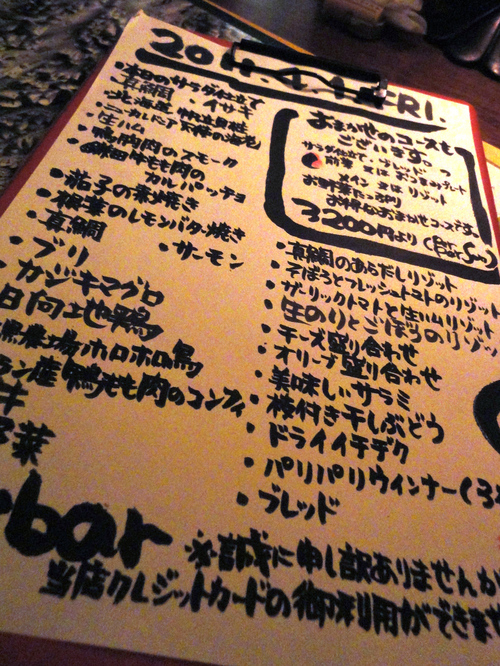 2014.4.4 FRI.
本日のサラダ仕立て
真鯛 ・イサキ
・北海道 帆立貝柱
・生ハム
・鴨胸肉のスモーク
・鴨もも肉の
カルパッチョ
・茄子の素焼き
・根菜のレモンバター焼き
・真鯛 ・サーモン
・ブリ
カジキマグロ
日向地鶏
農場ホロホロ鳥
産鴨もも肉のコンフィ
牛
菜
おまかせのコースも
ございますっっ
前菜 又は
メイン 又は リゾット
お得なおまかせコースです。
3200円より(PerSon)
・真鯛のあらだしリゾット
・そぼろとフレッシュトマトのリゾット
・ガーリックトマトと生ハムリゾット
・生のりとごぼうのリゾッ
・チーズ盛り合わせ
・オリーブ盛り合わせ
・美味しいサラミ
・枝付き干しぶどう
・ドライイチヂク
・パリパリウインナー(3
・ブレッド
bar
※誠に申し訳ありませんが
当店クレジットカードの御利用ができませ